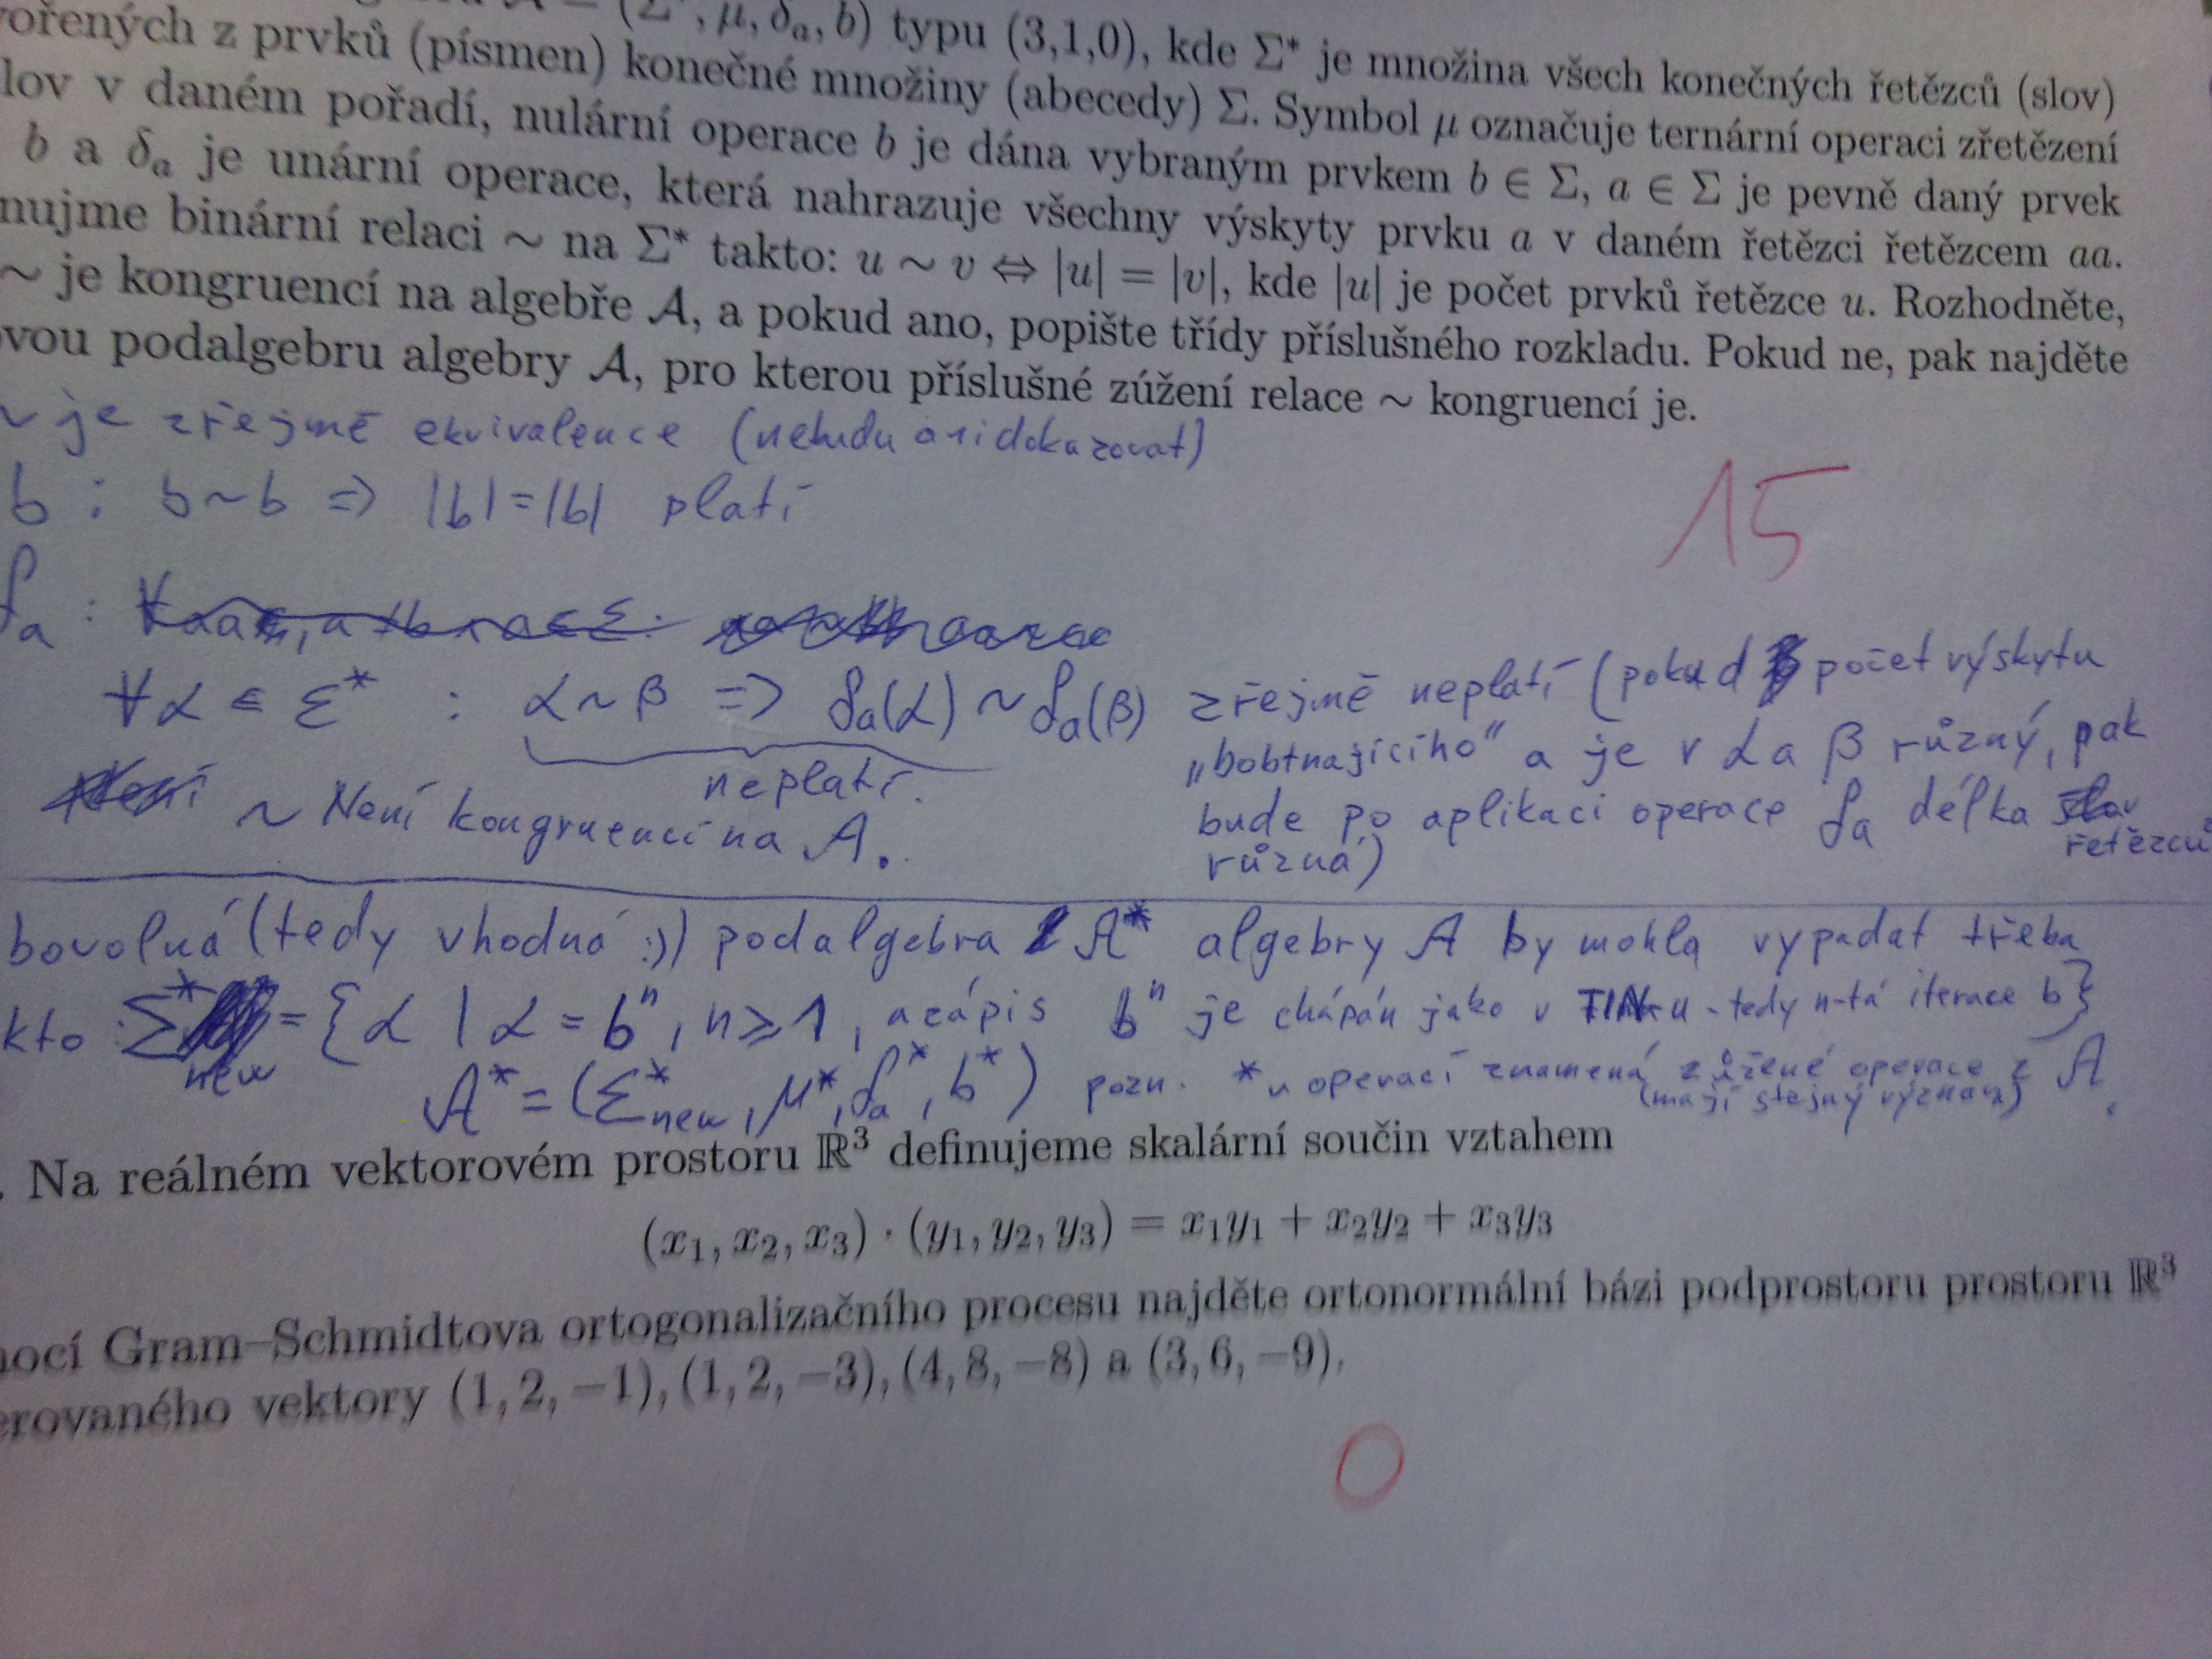 (Σ*, μ, δₐ, b) typu (3,1,0), kde Σ* je množina všech konečných řetězců (slov)
ořených z prvků (písmen) konečné množiny (abecedy) Σ. Symbol μ označuje ternární operaci zřetězení
lov v daném pořadí, nulární operace b je dána vybraným prvkem b ∈ Σ, a ∈ Σ je pevně daný prvek
b a δₐ je unární operace, která nahrazuje všechny výskyty prvku a v daném řetězci řetězcem aa.
nujme binární relaci ~ na Σ* takto: u ~ v ⇔ |u| = |v|, kde |u| je počet prvků řetězce u. Rozhodněte,
~ je kongruencí na algebře A, a pokud ano, popište třídy příslušného rozkladu. Pokud ne, pak najděte
vou podalgebru algebry A, pro kterou příslušné zúžení relace ~ kongruencí je.
~ je zřejmě ekvivalence (nebudu ani dokazovat)
b : b~b => |b|=|b| platí
15
δₐ :
∀α ∈ Σ* : α~β => δₐ(α) ~ δₐ(β) zřejmě neplatí (pokud počet výskytu
„bobtnajícího" a je v α a β různý, pak
neplatí.
bude po aplikaci operace δₐ délka řetězců
~ Není kongruencí na A.
různá)
bovolná (tedy vhodná :)) podalgebra A* algebry A by mohla vypadat třeba
kto : Σ*new = {α | α = bⁿ, n ≥ 1, a zápis bⁿ je chápán jako v TIN-u - tedy n-tá iterace b}
A* = (Σ*new, μ*, δₐ*, b*) pozn. * u operací znamená zúžené operace z A
(mají stejný význam)
. Na reálném vektorovém prostoru ℝ³ definujeme skalární součin vztahem
(x₁, x₂, x₃) · (y₁, y₂, y₃) = x₁y₁ + x₂y₂ + x₃y₃
ocí Gram–Schmidtova ortogonalizačního procesu najděte ortonormální bázi podprostoru prostoru ℝ³
erovaného vektory (1, 2, −1), (1, 2, −3), (4, 8, −8) a (3, 6, −9).
0